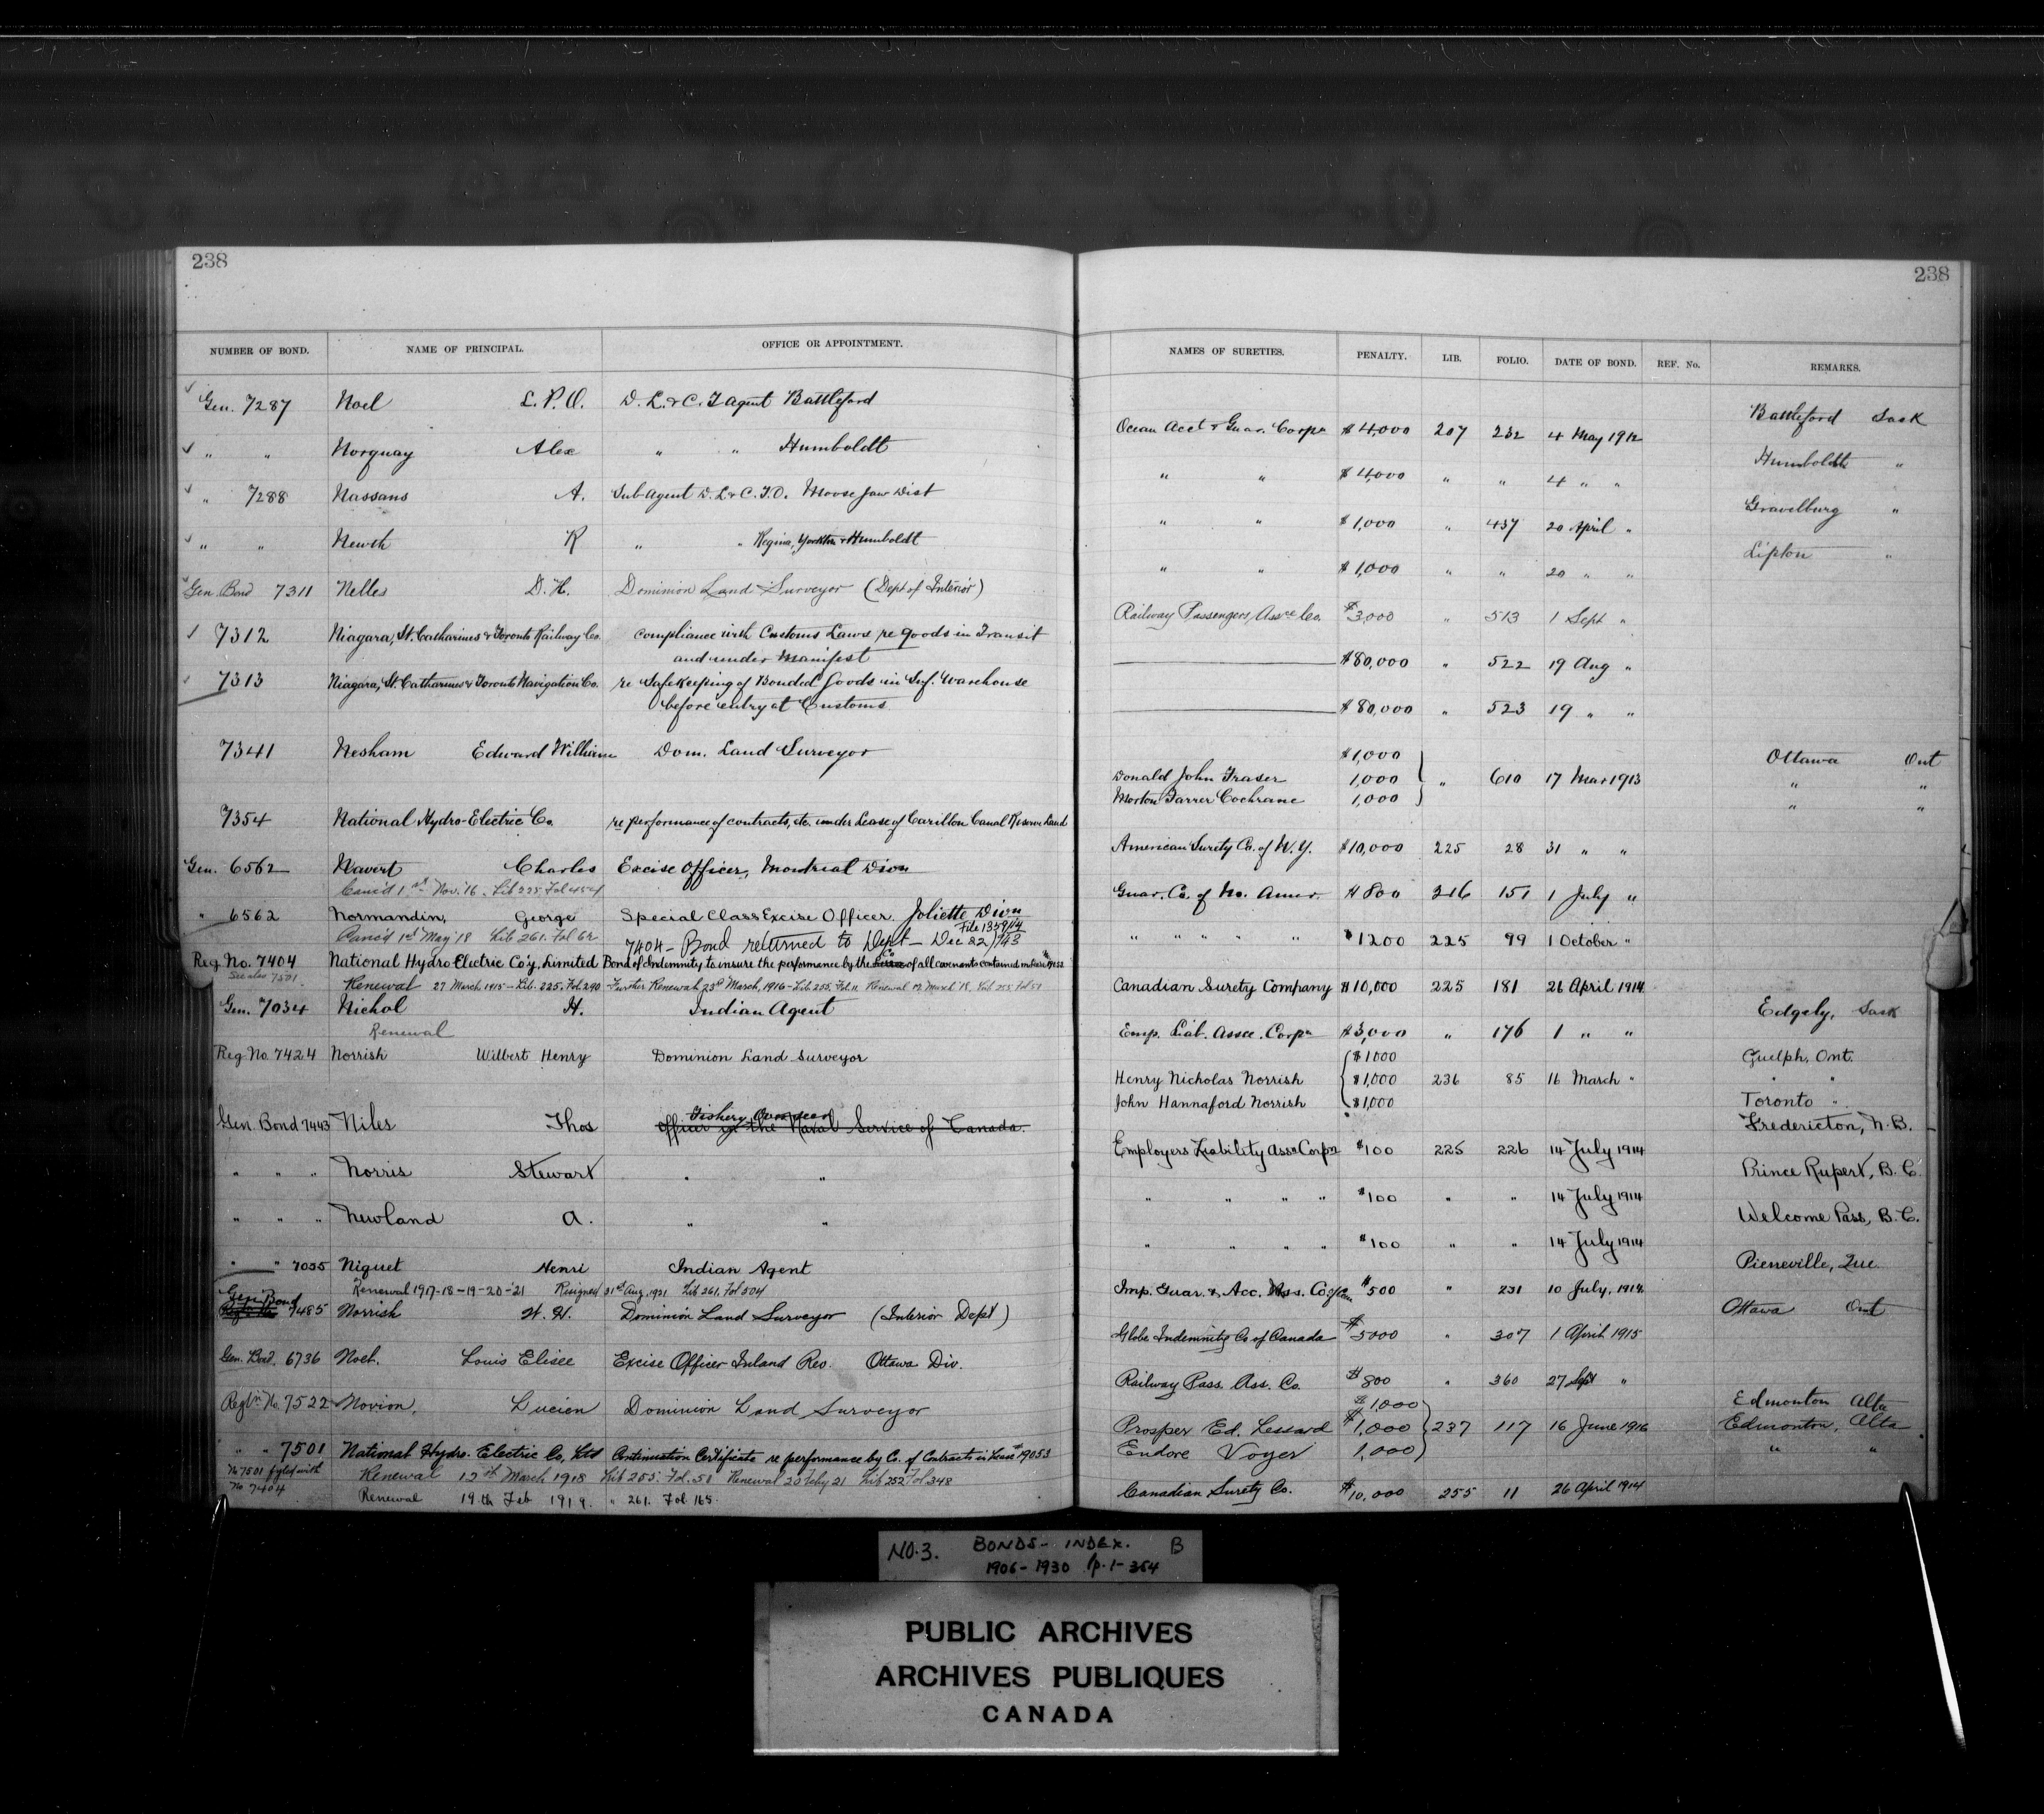 238
NUMBER OF BOND. NAME OF PRINCIPAL. OFFICE OR APPOINTMENT.
Gen. 7287 Noel L. P. O. D. L. & C. T. Agent Battleford
" " Norquay Alex " " Humboldt
" 7288 Nassans A. Sub-Agent D. L. & C. T. O. Moose Jaw Dist
" " Newth R " " Regina, Yorkton & Humboldt
Gen. Bond 7311 Nelles D. H. Dominion Land Surveyor (Dept of Interior)
7312 Niagara, St. Catharines & Toronto Railway Co. compliance with Customs Laws re goods in Transit
and under Manifest
7313 Niagara, St. Catharines & Toronto Navigation Co. re Safekeeping of Bonded Goods in Suf. Warehouse
before entry at Customs
7341 Nesham Edward William Dom. Land Surveyor
7354 National Hydro-Electric Co. re performance of contracts, etc. under Lease of Carillon Canal Reserve Land
Gen. 6562 Navert Charles Excise Officer, Montreal Divn
Canc'd 1st Nov. '16. Lib 225 Fol 454
" 6562 Normandin, George Special Class Excise Officer. Joliette Divn
Canc'd 1st May '18 Lib 261. Fol 62 7404 - Bond returned to Dept - Dec 22/43 File 135914
Reg. No. 7404 National Hydro Electric Co'y, Limited Bond of Indemnity to insure the performance by the Co of all covenants contained in lease
See also 7501. Renewal 27 March 1915 - Lib. 225. Fol. 290 - Further Renewal 23rd March, 1916 - Lib 255. Fol. 11 Renewal 12 March '18, Lib 255 Fol 51
Gen. 7034 Nichol H. Indian Agent
Renewal
Reg. No. 7424 Norrish Wilbert Henry Dominion Land Surveyor
Fishery Overseer
Gen. Bond 7443 Niles Thos Officer in the Naval Service of Canada.
" " " Norris Stewart " "
" " " Newland A. " "
" " 7035 Niquet Henri Indian Agent
Renewal 1917-18-19-20-'21 Resigned 31st Aug, 1921 Lib 261, Fol 504
Gen Bond
7485 Norrish W. H. Dominion Land Surveyor (Interior Dept)
Gen. Bond. 6736 Noel. Louis Elisee Excise Officer Inland Rev. Ottawa Div.
Regtn No. 7522 Novion, Lucien Dominion Land Surveyor
" " 7501 National Hydro. Electric Co, Ltd Continuation Certificate re performance by Co. of Contracts in Lease #19053
No 7501 fyled with Renewal 12th March 1918 Lib 255. Fol. 51 Renewal 20 Feby 21 Lib 252 Fol 348
No 7404 Renewal 19th Feb 1919. " 261. Fol 165.
238
NAMES OF SURETIES. PENALTY. LIB. FOLIO. DATE OF BOND. REF. No. REMARKS.
Ocean Acct & Guar. Corpn $4,000 207 232 4 May 1912 Battleford Sask
" " $4,000 " " 4 " " Humboldt "
" " $1,000 " 437 20 April " Gravelburg "
" " $1,000 " " 20 " " Lipton "
Railway Passengers Assce Co. $3,000 " 513 1 Sept "
$80,000 " 522 19 Aug "
$80,000 " 523 19 " "
$1,000 Ottawa Ont
Donald John Fraser 1,000 " 610 17 Mar 1913 " "
Morton Farrer Cochrane 1,000 " "
American Surety Co. of N. Y. $10,000 225 28 31 " "
Guar. Co. of No. Amer. $800 216 151 1 July "
" " " " " $1200 225 99 1 October "
Canadian Surety Company $10,000 225 181 26 April 1914
Emp. Liab. Assce. Corpn $3,000 " 176 1 " " Edgely, Sask
$1000 Guelph, Ont.
Henry Nicholas Norrish $1,000 236 85 16 March " " "
John Hannaford Norrish $1,000 Toronto "
Employers Liability Ass Corpn $100 225 226 14 July 1914 Fredericton, N. B.
" " " " $100 " " 14 July 1914 Prince Rupert, B. C.
" " " " $100 " " 14 July 1914 Welcome Pass, B. C.
Imp. Guar. & Acc. Ass. Co $500 " 231 10 July, 1914 Pierreville, Que.
Globe Indemnity Co of Canada $5000 " 307 1 April 1915 Ottawa Ont
Railway Pass. Ass. Co. $800 " 360 27 Sept "
$1000 Edmonton Alta
Prosper Ed. Lessard $1,000 237 117 16 June 1916 Edmonton, Alta
Endore Voyer 1,000 " "
Canadian Surety Co. $10,000 255 11 26 April 1914
NO. 3. BONDS - INDEX. B
1906 - 1930 p. 1 - 354
PUBLIC ARCHIVES
ARCHIVES PUBLIQUES
CANADA